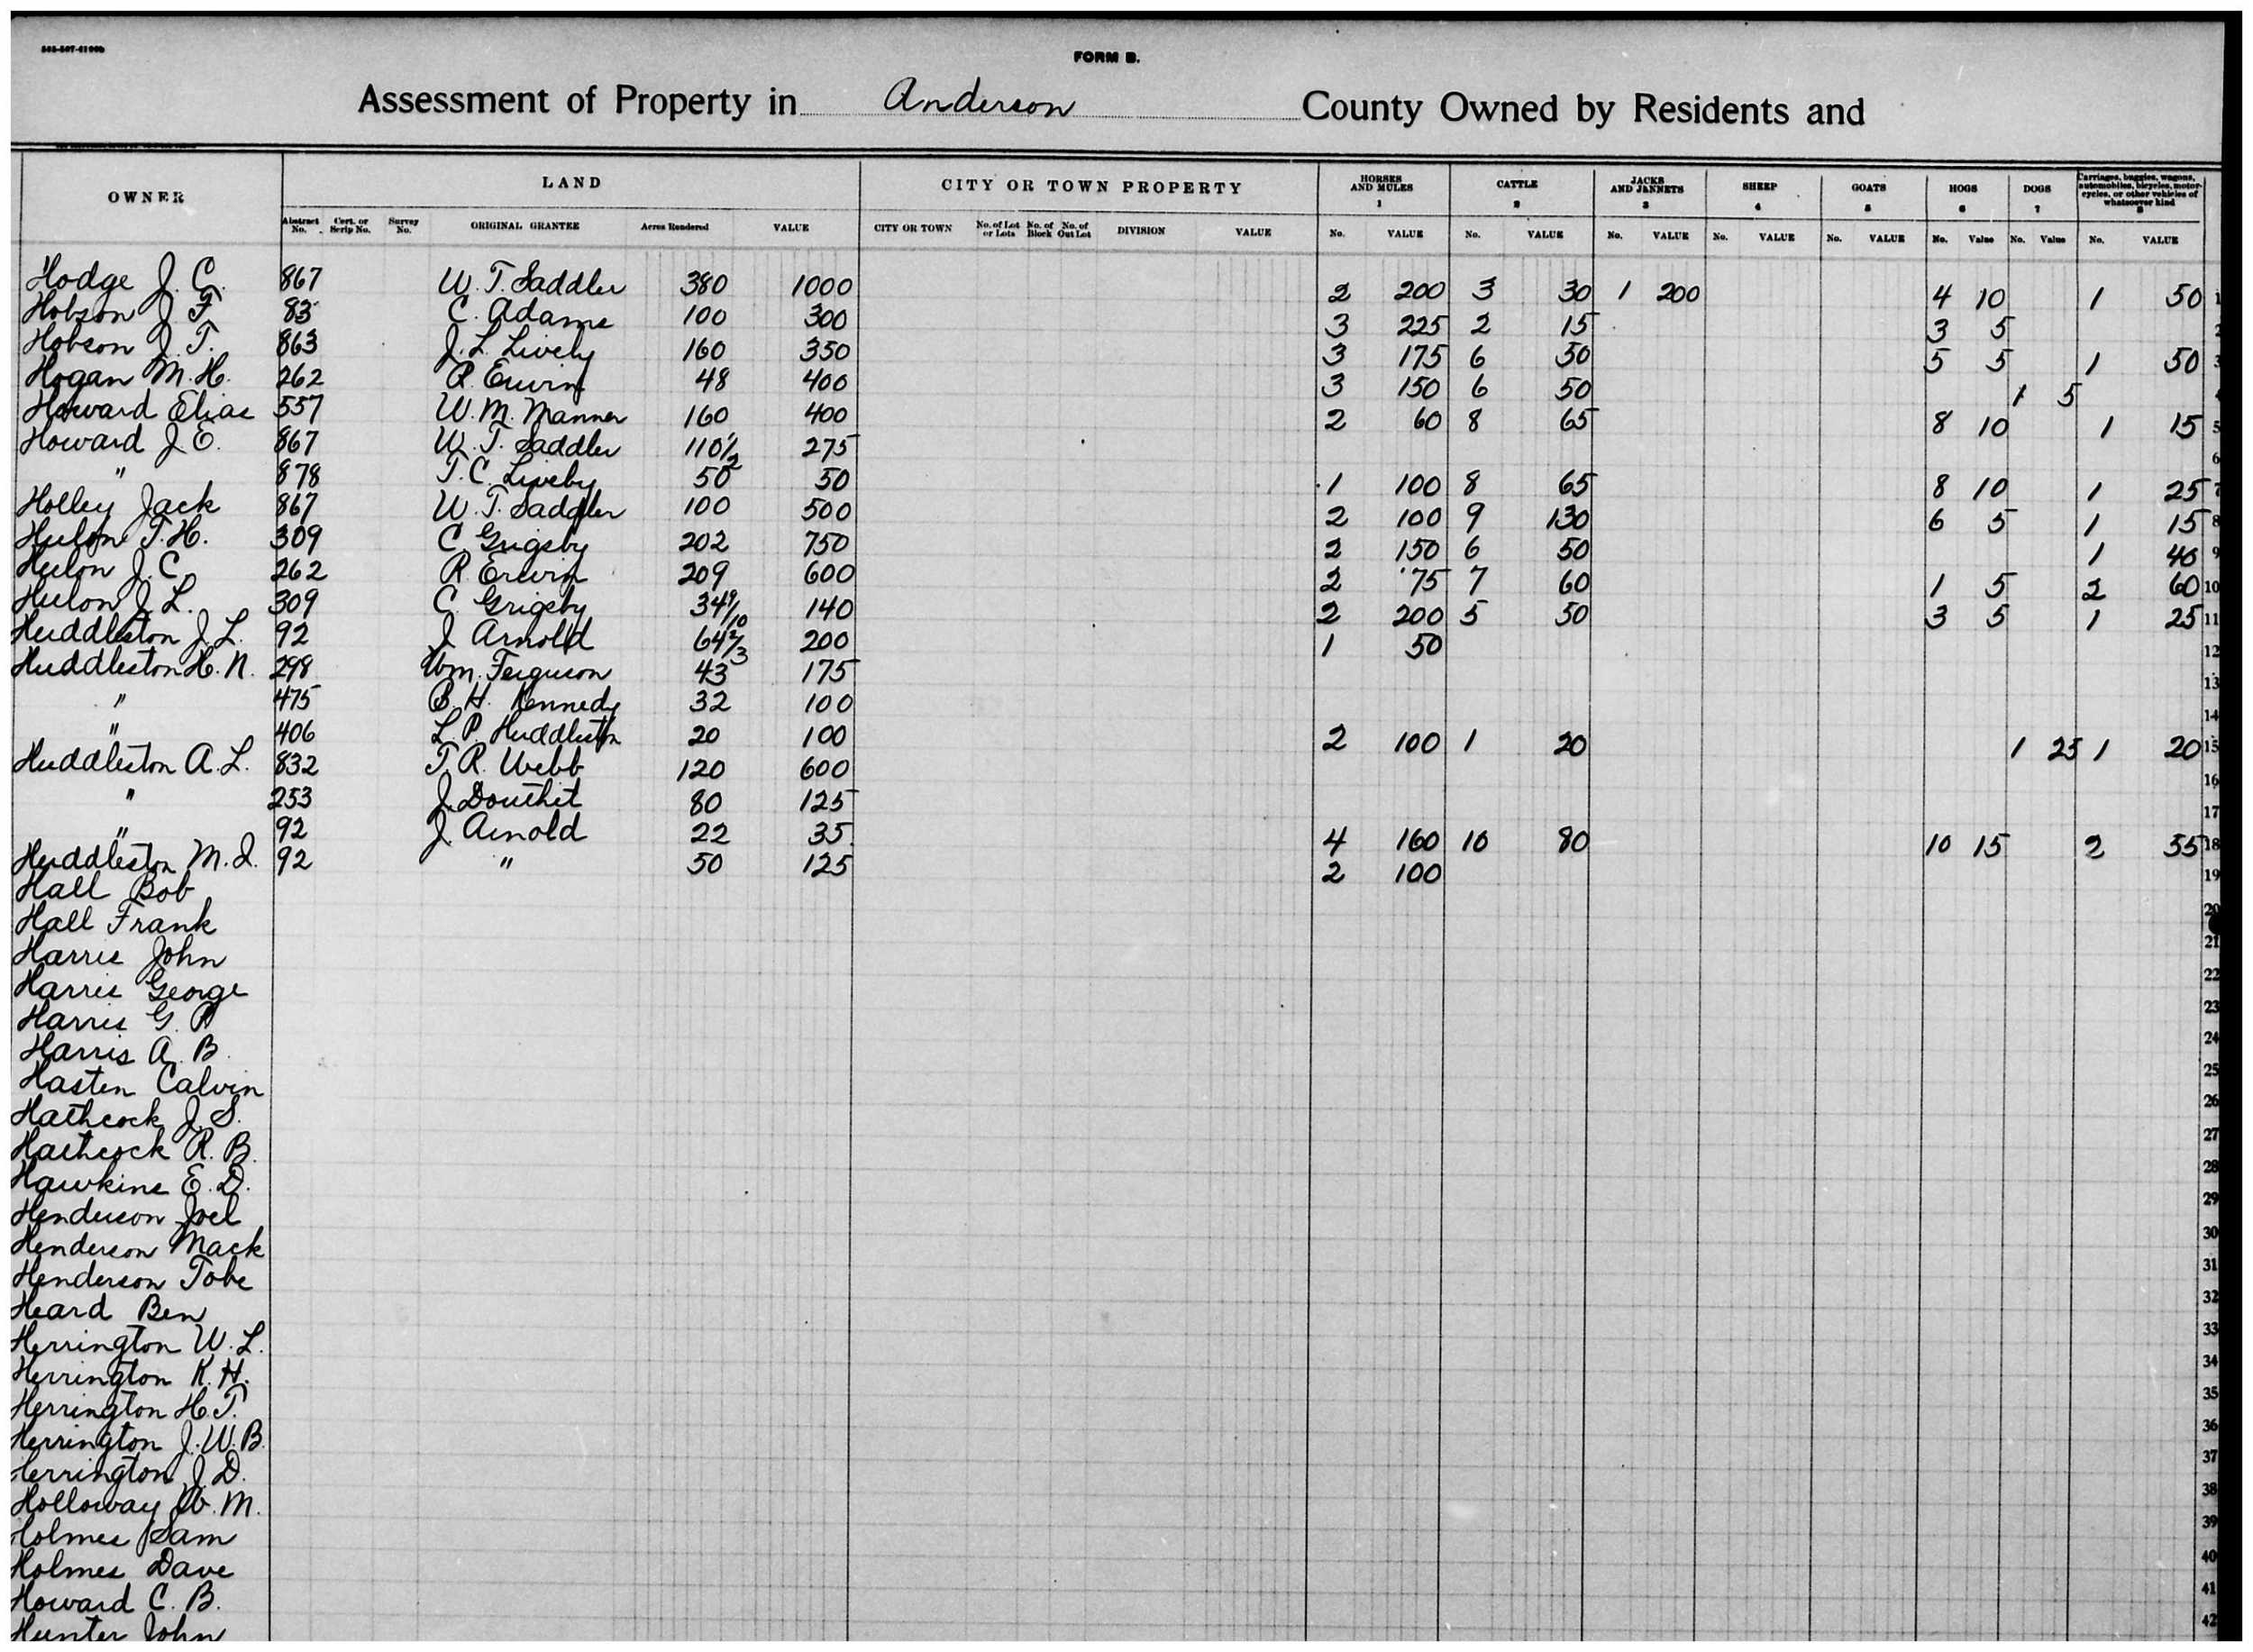 FORM B.
Assessment of Property in Anderson County Owned by Residents and
OWNER LAND CITY OR TOWN PROPERTY HORSES AND MULES 1 CATTLE 2 JACKS AND JENNETS 3 SHEEP 4 GOATS 5 HOGS 6 DOGS 7 Carriages, buggies, wagons, automobiles, bicycles, motorcycles, or other vehicles of whatsoever kind 8
Abstract No. Cert. or Scrip No. Survey No. ORIGINAL GRANTEE Acres Rendered VALUE CITY OR TOWN No. of Lot or Lots No. of Block No. of Out Lot DIVISION VALUE No. VALUE No. VALUE No. VALUE No. VALUE No. VALUE No. Value No. Value No. VALUE
Hodge J. C. 867 W. T. Saddler 380 1000 2 200 3 30 1 200 4 10 1 50 1
Hobson J. F. 83 C. Adams 100 300 3 225 2 15 3 5 2
Hobson J. T. 863 J. L. Lively 160 350 3 175 6 50 5 5 1 50 3
Hogan M. H. 262 R. Erwin 48 400 3 150 6 50 1 5 4
Howard Elias 557 W. M. Manner 160 400 2 60 8 65 8 10 1 15 5
Howard J. E. 867 W. T. Saddler 110 1/2 275 6
" 878 T. C. Liveby 50 50 1 100 8 65 8 10 1 25 7
Holley Jack 867 W. T. Saddler 100 500 2 100 9 130 6 5 1 15 8
Hulon T. H. 309 C. Grigsby 202 750 2 150 6 50 1 40 9
Hulon J. C. 262 R. Erwin 209 600 2 75 7 60 1 5 2 60 10
Hulon J. L. 309 C. Grigsby 34 9/10 140 2 200 5 50 3 5 1 25 11
Huddleston J. L. 92 J Arnold 64 2/3 200 1 50 12
Huddleston H. N. 298 Wm. Ferguson 43 175 13
" 475 B. H. Kennedy 32 100 14
" 406 L. P. Huddleston 20 100 2 100 1 20 1 25 1 20 15
Huddleston A. L. 832 T. R. Webb 120 600 16
" 253 J. Douthit 80 125 17
" 92 J. Arnold 22 35 4 160 10 80 10 15 2 55 18
Huddleston M. I. 92 " 50 125 2 100 19
Hall Bob 20
Hall Frank 21
Harris John 22
Harris George 23
Harris G. P. 24
Harris A. B. 25
Hasten Calvin 26
Hathcock J. S. 27
Hathcock R. B. 28
Hawkins E. D. 29
Henderson Joel 30
Henderson Mack 31
Henderson Tobe 32
Heard Ben 33
Herrington W. L. 34
Herrington K. H. 35
Herrington H. T. 36
Herrington J. W. B. 37
Herrington J. D. 38
Holloway W. M. 39
Holmes Sam 40
Holmes Dave 41
Howard C. B. 42
Hunter John